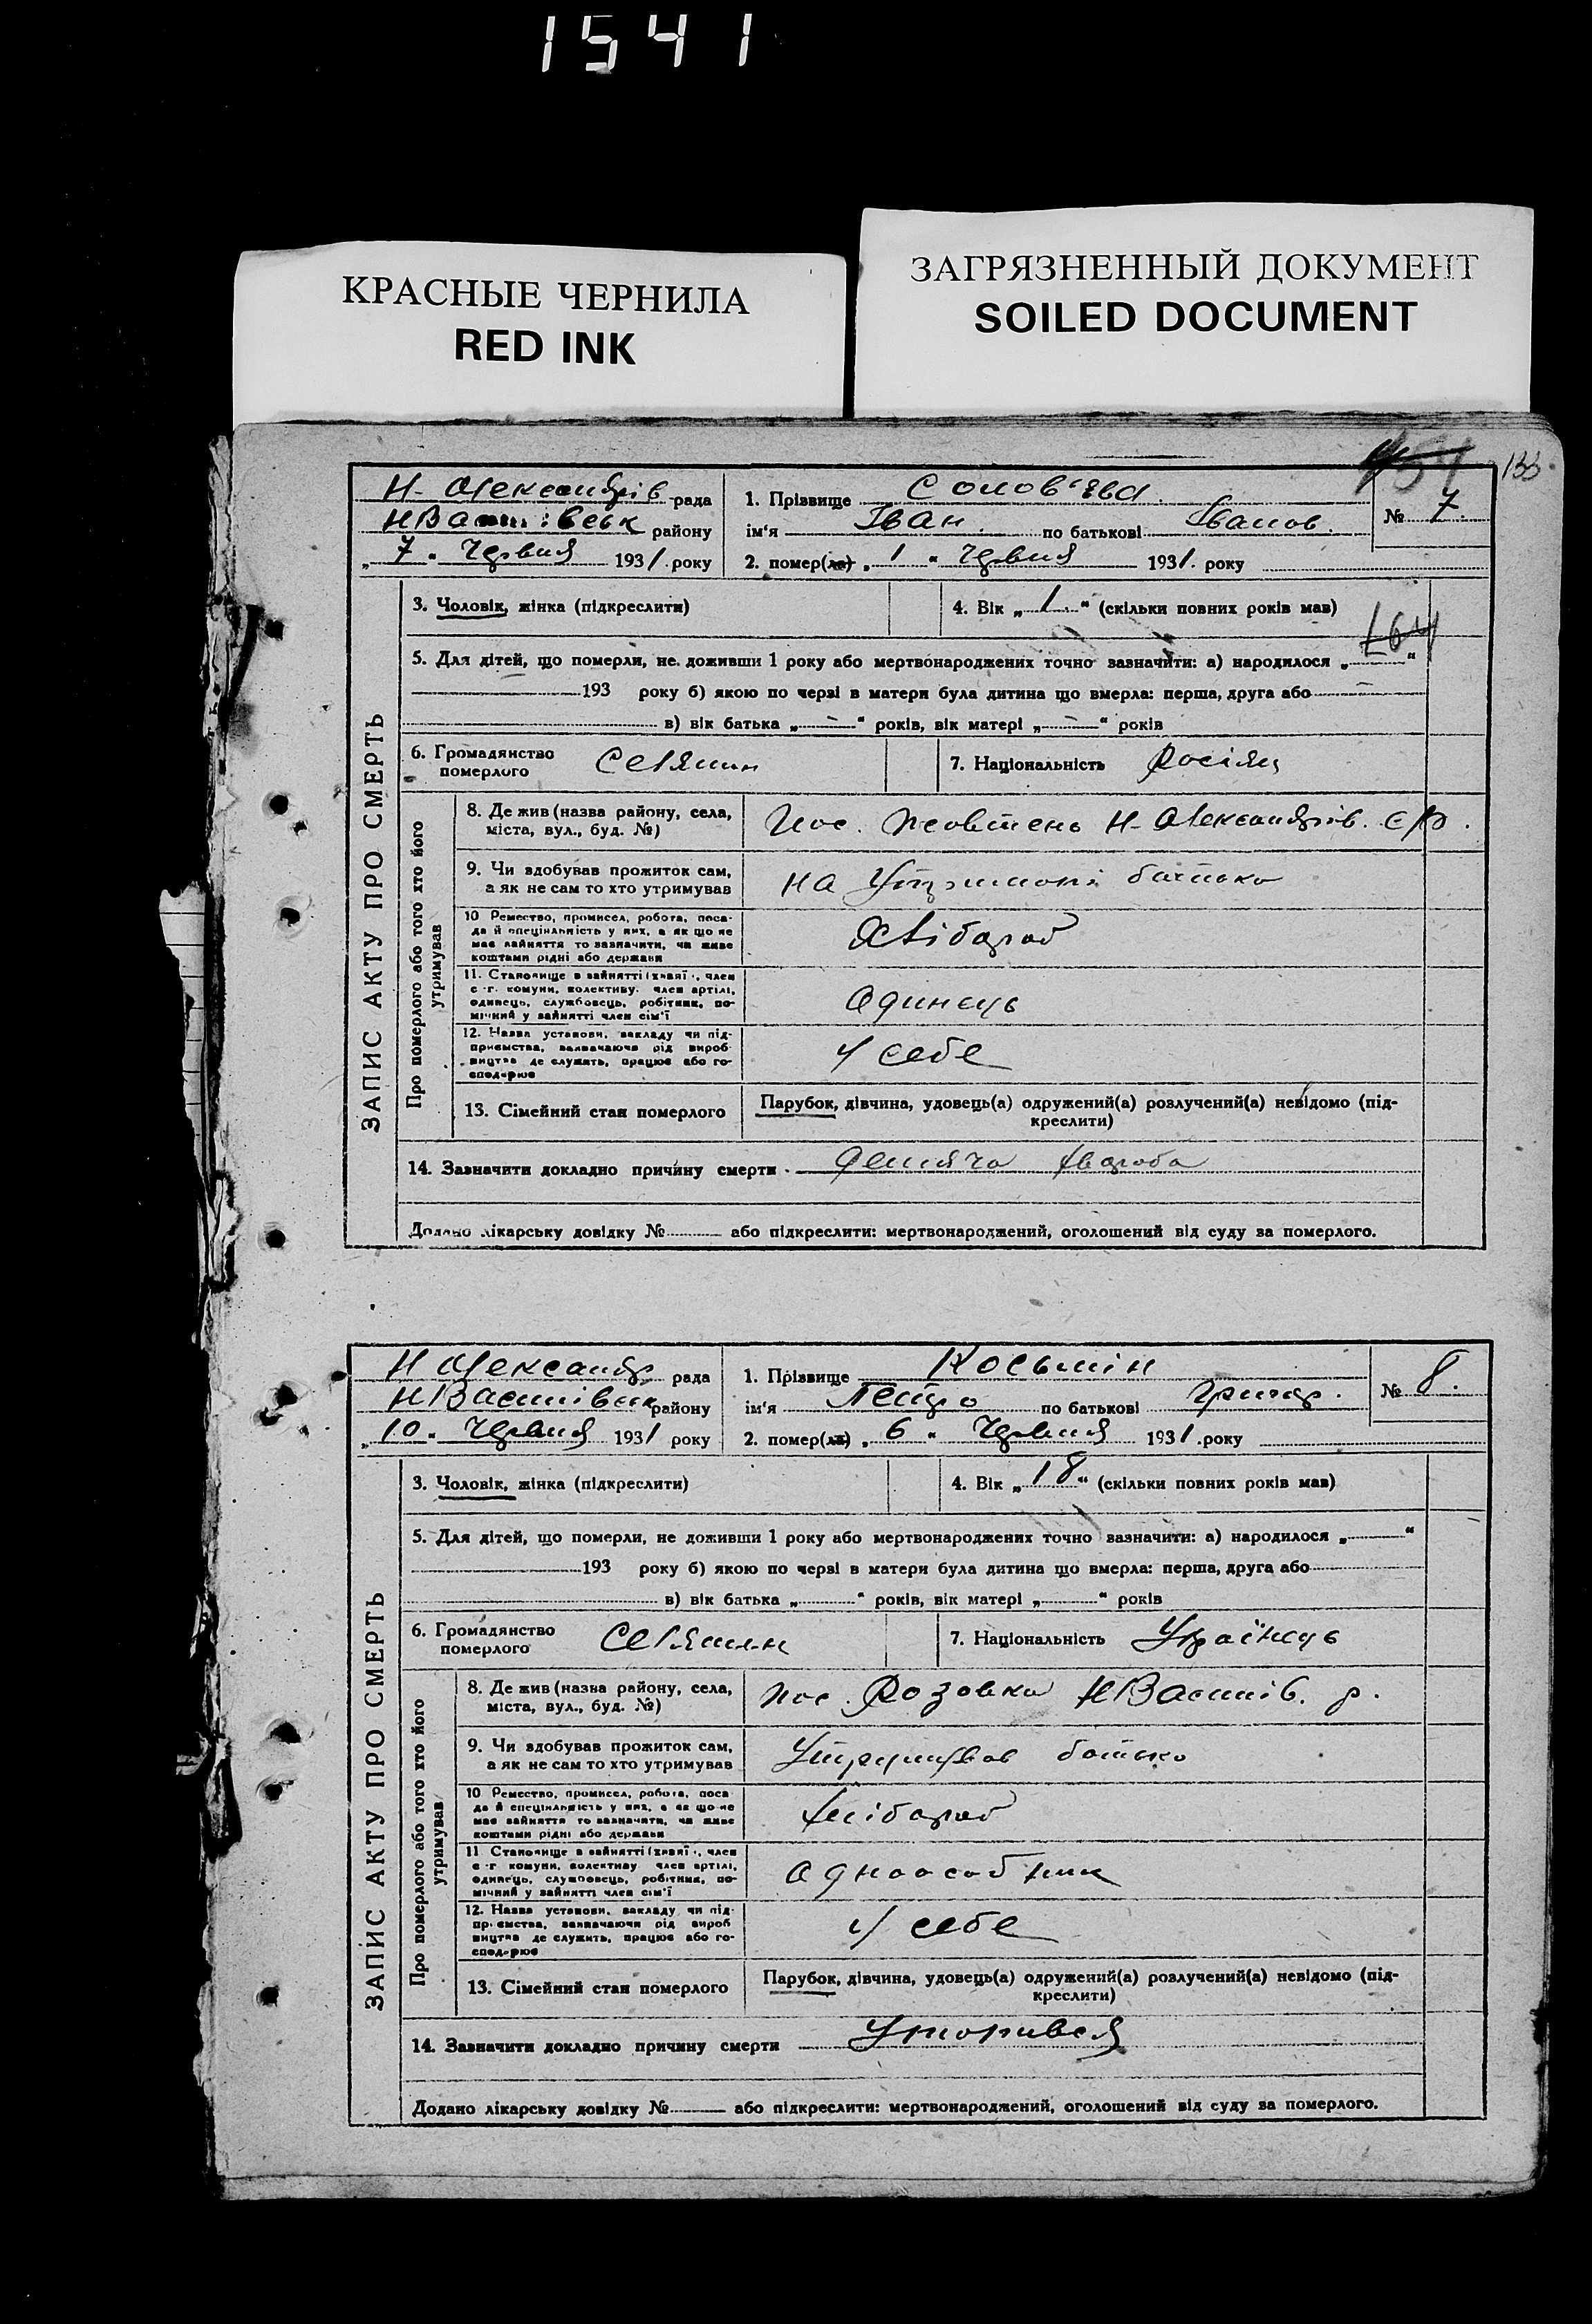 1541
КРАСНЫЕ ЧЕРНИЛА
RED INK
ЗАГРЯЗНЕННЫЙ ДОКУМЕНТ
SOILED DOCUMENT
133
Н-Олександрів рада
НВасилівськ району
„7" Червня 1931 року
1. Прізвище Солов'йва
ім'я Іван по батькові Іванов.
2. помер(ла) „1" Червня 1931. року
№ 7.
ЗАПИС АКТУ ПРО СМЕРТЬ
3. Чоловік, жінка (підкреслити)
4. Вік „1" (скільки повних років мав)
164
5. Для дітей, що померли, не доживши 1 року або мертвонароджених точно зазначити: а) народилося „ "
193 року б) якою по черзі в матери була дитина що вмерла: перша, друга або —
в) вік батька „—" років, вік матері „—" років
6. Громадянство померлого Селянин
7. Національність Росіян
Про померлого або того хто його утримував
8. Де жив (назва району, села,
міста, вул., буд. №)
Пос. Жовтень Н-Олександрів. с/р.
9. Чи здобував прожиток сам,
а як не сам то хто утримував
на Утриманні батька
10 Ремество, промисел, робота, поса-
да й спеціяльність у них, а як що не
має зайняття то зазначити, чи живе
коштами рідні або держави
Хлібороб
11. Становище в зайнятті (хазяї, член
с.-г. комуни, колективу, член артілі,
одинець, службовець, робітник, по-
мічний у зайнятті член сім'ї
Одинець
12. Назва установи, закладу чи під-
приємства, зазначаючи рід вироб-
ництва де служить, працює або го-
сподарює
У себе
13. Сімейний стан померлого
Парубок, дівчина, удовець(а) одружений(а) розлучений(а) невідомо (під-
креслити)
14. Зазначити докладно причину смерти Демяча Хвороба
Додано лікарську довідку № або підкреслити: мертвонароджений, оголошений від суду за померлого.
Н Олександр рада
НВасилівськ району
„10" Червня 1931 року
1. Прізвище Косьмін
ім'я Петро по батькові Григор.
2. помер(ла) „6" Червня 1931. року
№ 8.
ЗАПИС АКТУ ПРО СМЕРТЬ
3. Чоловік, жінка (підкреслити)
4. Вік „18" (скільки повних років мав)
5. Для дітей, що померли, не доживши 1 року або мертвонароджених точно зазначити: а) народилося „ "
193 року б) якою по черзі в матери була дитина що вмерла: перша, друга або
в) вік батька „ " років, вік матері „ " років
6. Громадянство померлого Селянин
7. Національність Українець
Про померлого або того хто його утримував
8. Де жив (назва району, села,
міста, вул., буд. №)
пос. Розовка НВасилів. р.
9. Чи здобував прожиток сам,
а як не сам то хто утримував
Утримував батько
10 Ремество, промисел, робота, поса
да й спеціяльність у них, а як що не
має зайняття то зазначити, чи живе
коштами рідні або держави
Хлібороб
11 Становище в зайнятті (хазяї, член
с.-г. комуни, колективу член артілі,
одинець, службовець, робітник, по-
мічний у зайнятті член сім'ї
Одноосібник
12. Назва установи, закладу чи під-
приємства, зазначаючи рід вироб
ництва де служить, працює або го-
сподарює
У себе
13. Сімейний стан померлого
Парубок, дівчина, удовець(а) одружений(а) розлучений(а) невідомо (під-
креслити)
14. Зазначити докладно причину смерти Утопився
Додано лікарську довідку № або підкреслити: мертвонароджений, оголошений від суду за померлого.